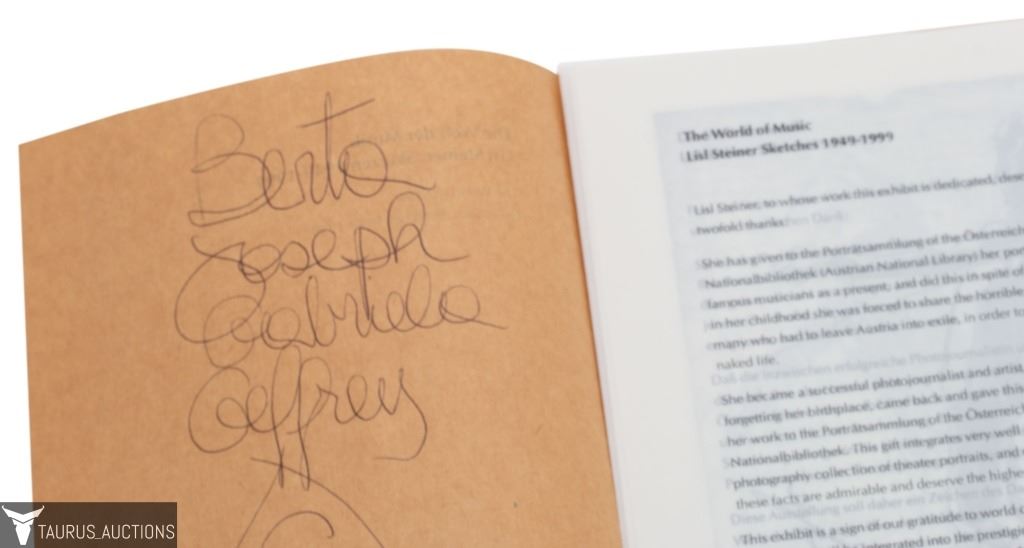 Berta
Joseph
Gabriela
Geffrey
The World of Music
Lisl Steiner Sketches 1949-1999
Lisl Steiner, to whose work this exhibit is dedicated, dese
twofold thanks.
She has given to the Porträtsammlung of the Österreich
Nationalbibliothek (Austrian National Library) her por
famous musicians as a present, and did this in spite of
in her childhood she was forced to share the horrible
many who had to leave Austria into exile, in order to
naked life.
She became a successful photojournalist and artist,
forgetting her birthplace, came back and gave this
her work to the Porträtsammlung of the Österreic
Nationalbibliothek. This gift integrates very well
photography collection of theater portraits, and
these facts are admirable and deserve the highe
This exhibit is a sign of our gratitude to world c
integrated into the prestigi
TAURUS_AUCTIONS